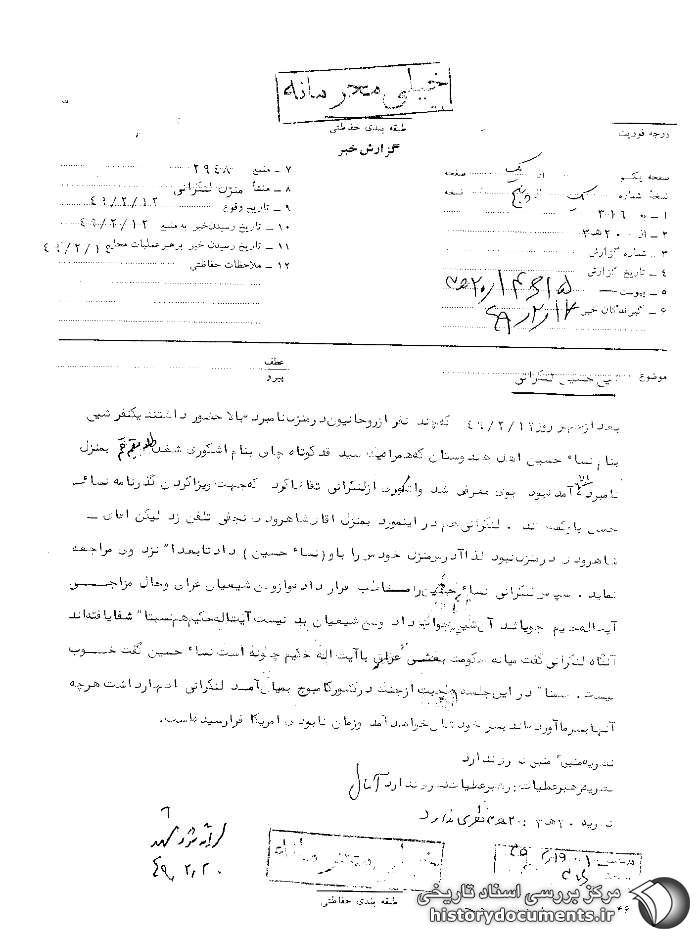 خیلی محرمانه
طبقه بندی حفاظتی
درجه فوریت
گزارش خبر
صفحه یک از یک صفحه
نسخه شماره یک از پنج نسخه
۱ ـ به ۳۱۶
۲ ـ از ۲۰ هـ ۳
۳ ـ شماره گزارش
۴ ـ تاریخ گزارش
۵ ـ پیوست
۶ ـ گیرندگان خبر
۷ ـ منبع ۲۹۴۸
۸ ـ منشأ منزل لنکرانی
۹ ـ تاریخ وقوع ۴۹/۲/۱۲
۱۰ ـ تاریخ رسیدن خبر به منبع ۴۹/۲/۱۲
۱۱ ـ تاریخ رسیدن خبر برهبر عملیات محلی
۱۲ ـ ملاحظات حفاظتی
عطف
پیرو
موضوع حسین لنکرانی
بعد از ظهر روز که چند نفر از روحانیون در منزل نامبرده بالا حضور داشتند یکنفر شیعی
بنام نساء حسین اهل هندوستان که همراه یک سید قد کوتاه چاق بنام اشکوری شغل طلبه مقیم قم بمنزل
نامبرده آمده بود بوی معرفی شد و اشکوری از لنکرانی تقاضا کرد که جهت ویزا کردن گذرنامه نساء
حسین باو کمک کند . لنکرانی هم در اینمورد بمنزل آقا شاهرودی نجفی تلفن زد لیکن آقای ـ
شاهرودی در منزل نبود لذا آدرس منزل خودش را باو (نساء حسین) داد تا بعداً نزد وی مراجعه
نماید . سپس لنکرانی نساء حسین را مخاطب قرار داد و از وی شیعیان عراق و حال مزاجی
آیت اله حکیم جویا شد جواب داد وضع شیعیان بد نیست آیت اله حکیم هم نسبتاً شفا یافته اند
آنگاه لنکرانی گفت میانه حکومت بعثی عراق با آیت اله حکیم چگونه است نساء حسین گفت خوب
نیست . ضمناً در این جلسه صحبت از جنگ در کشور کامبوج بمیان آمد لنکرانی اظهار داشت هر چه
آنها بسر ما آورده اند بسر خودشان خواهد آمد و زمان نابودی امریکا فرا رسیده است .
نظریه منبع نظری ندارد
نظریه رهبر عملیات : رهبر عملیات نظری ندارد
نظریه ۲۰ هـ ۳ : ۲۰ هـ ۳ نظری ندارد
۴۹/۲/۲۰
خیلی محرمانه
طبقه بندی حفاظتی
مرکز بررسی اسناد تاریخی
historydocuments.ir